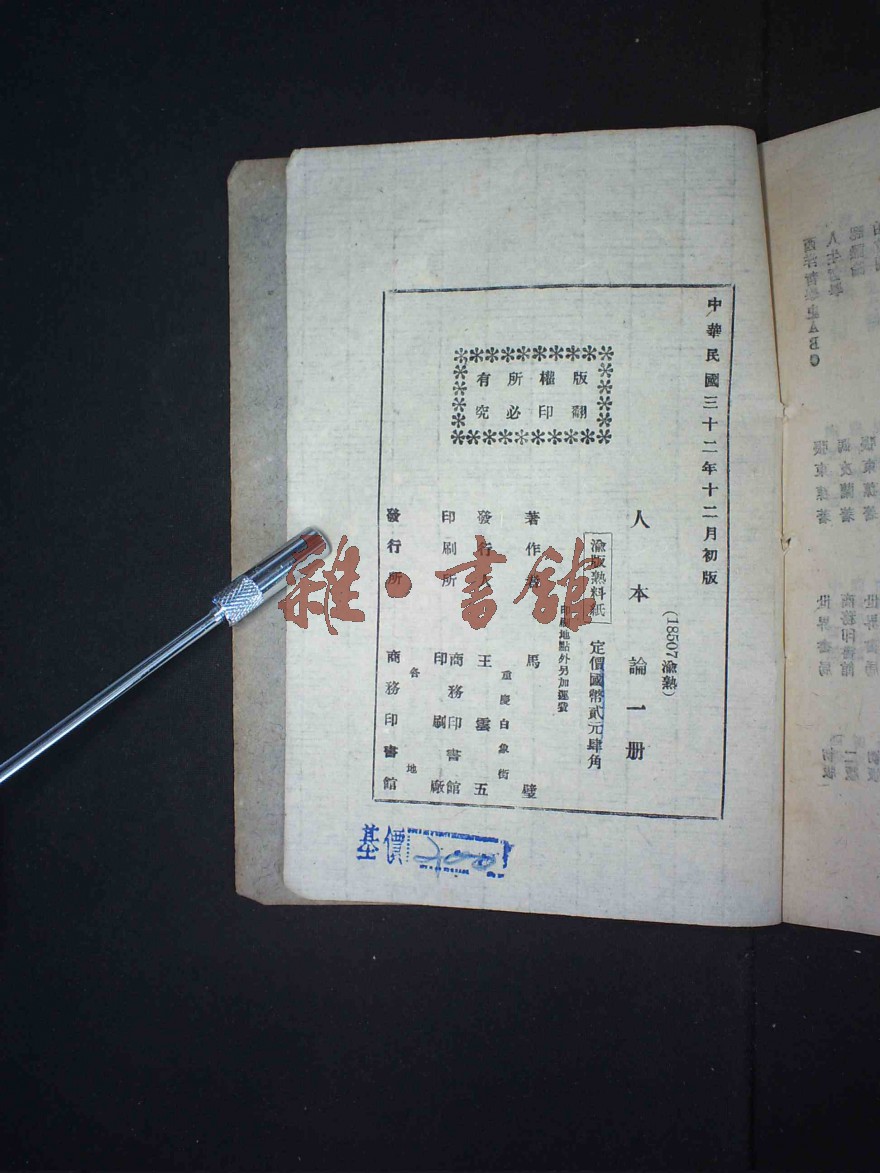 中華民國三十二年十二月初版
版權所有
翻印必究
(18507渝熟)
人本論一册
渝版熟料紙
定價國幣貳元肆角
印刷地點外另加運費
著作者 馬璧
重慶白象街
發行人 王雲五
印刷所 商務印書館印刷廠
各地
發行所 商務印書館
基價
雜·書館